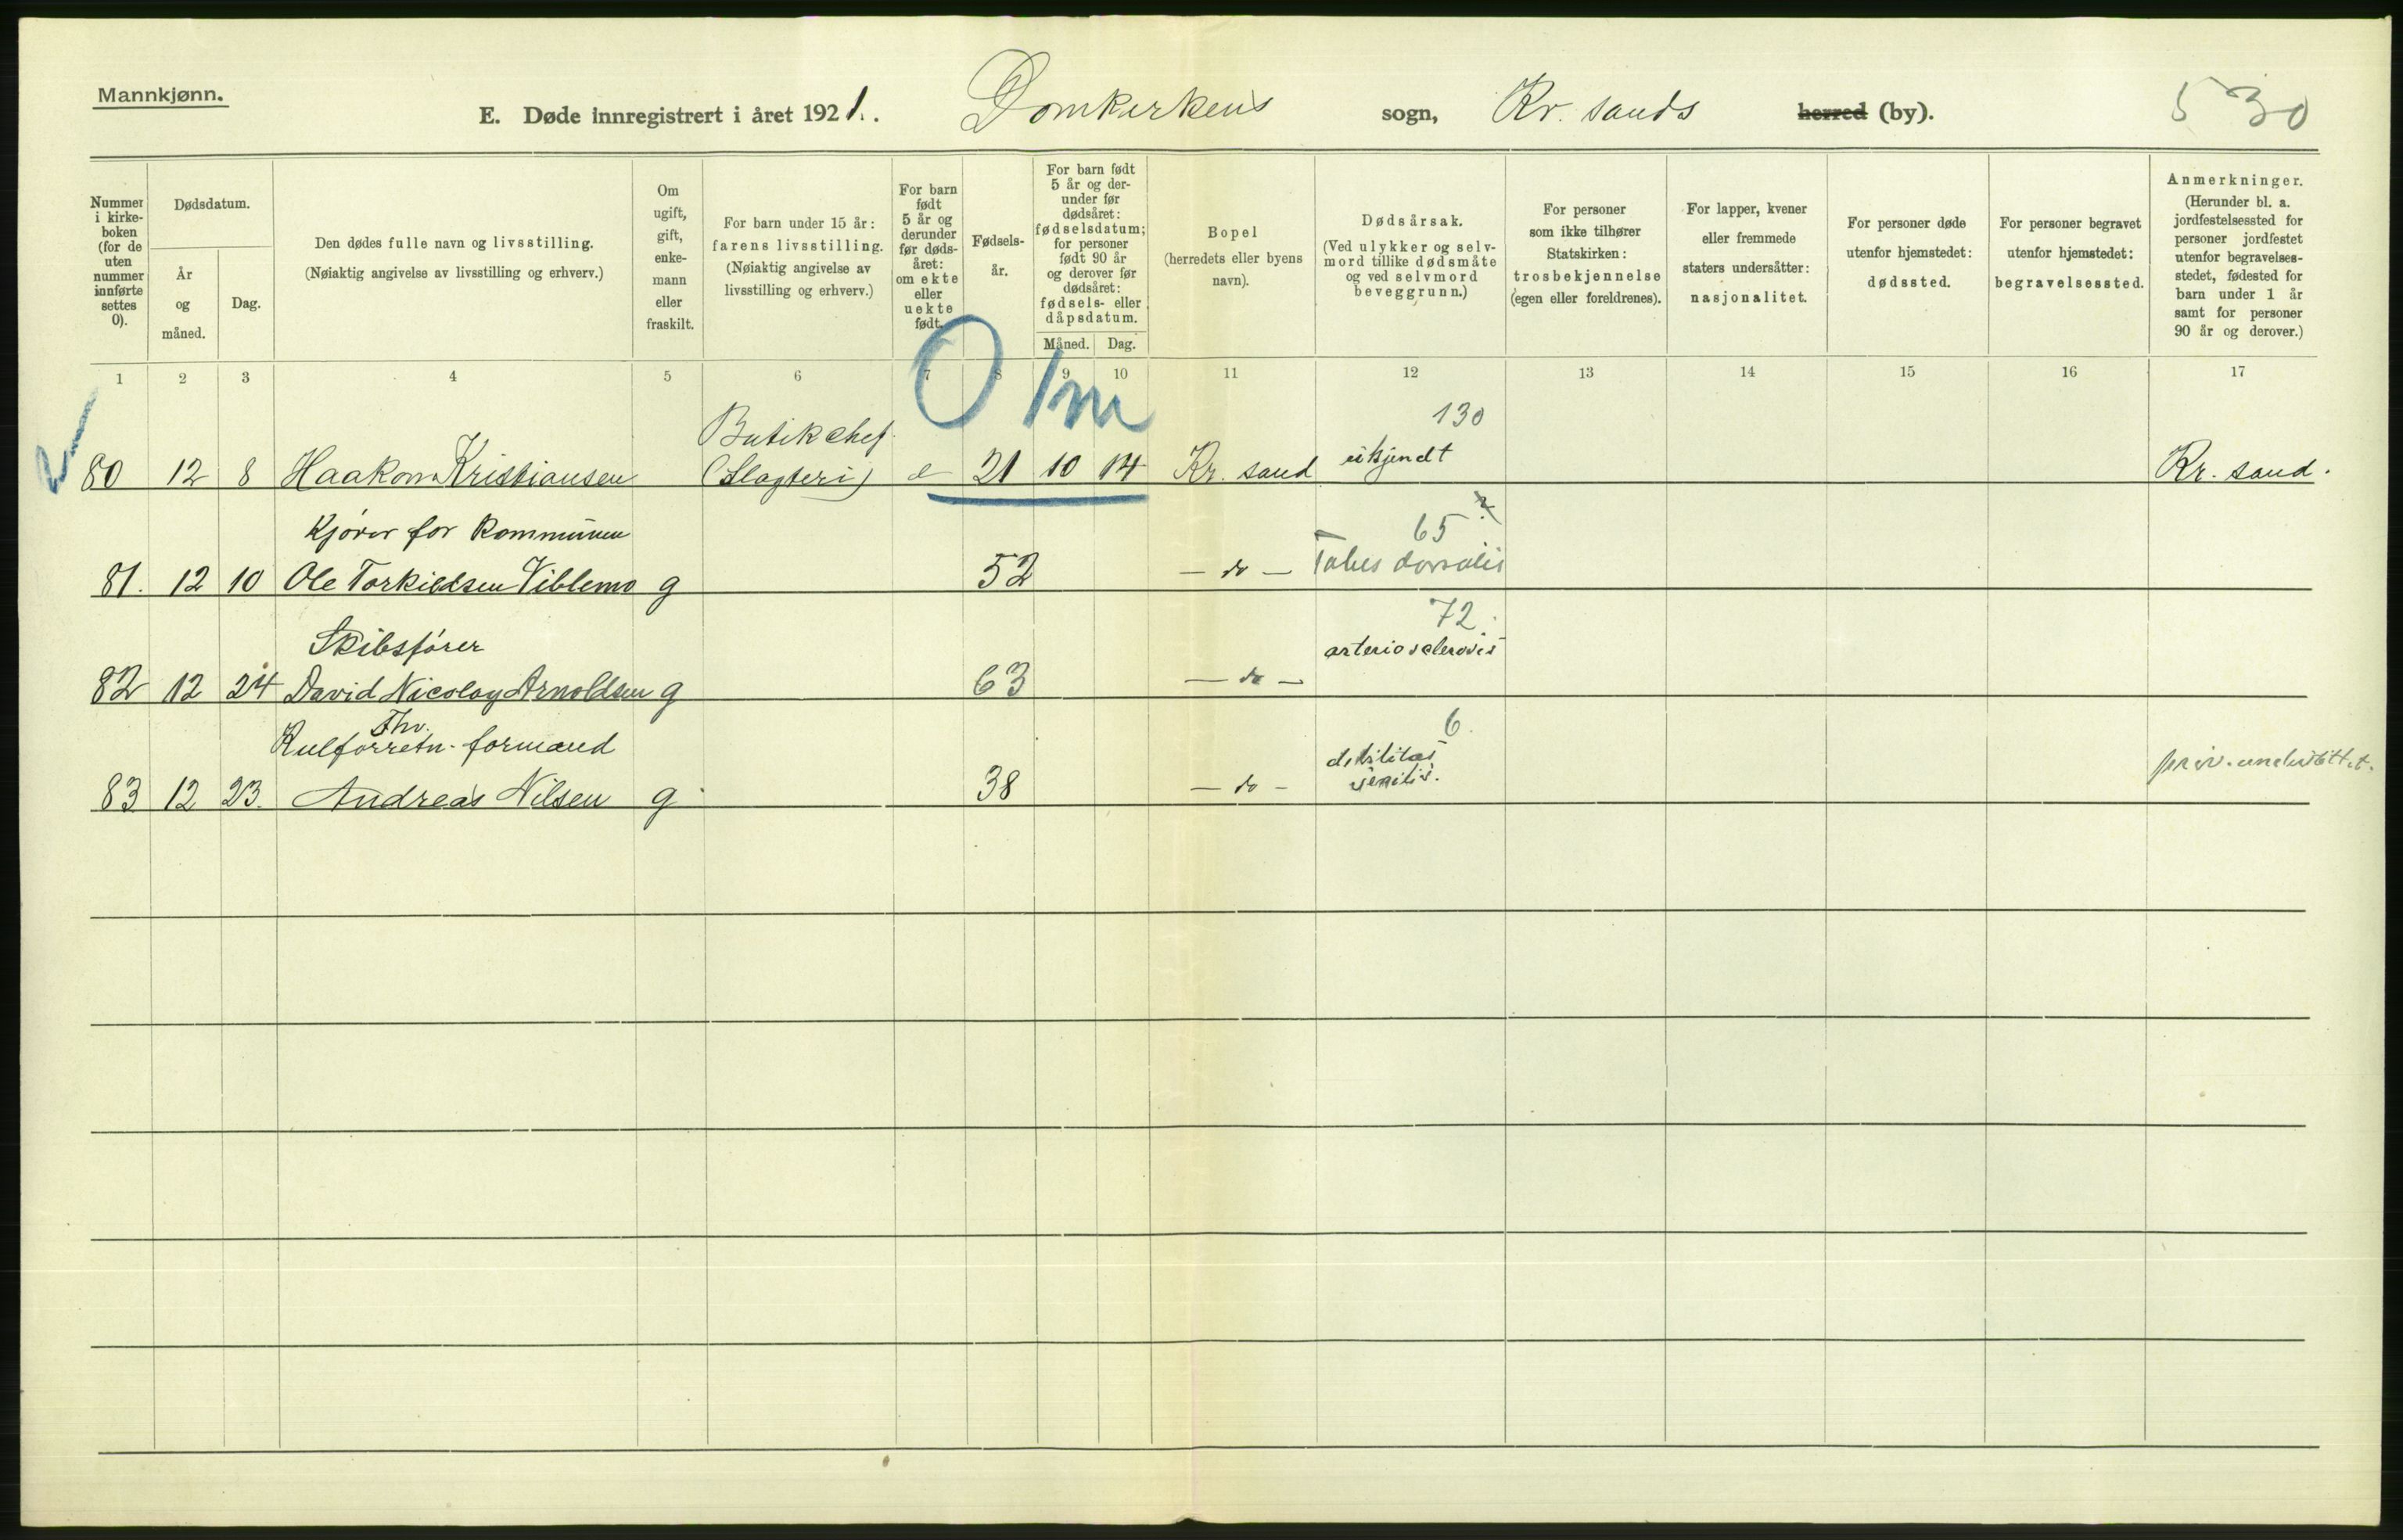 Mannkjønn.
E. Døde innregistrert i året 1921. Domkirkens sogn, Kr. sands herred (by). 5 30
Nummer i kirke- boken (for de uten nummer innførte settes 0).
Dødsdatum.
År og måned.
Dag.
Den dødes fulle navn og livsstilling.
(Nøiaktig angivelse av livsstilling og erhverv.)
Om ugift, gift, enke- mann eller fraskilt.
For barn under 15 år:
farens livsstilling.
(Nøiaktig angivelse av
livsstilling og erhverv.)
For barn født 5 år og derunder før døds- året: om ekte eller uekte født.
Fødsels- år.
For barn født 5 år og der- under før dødsåret: fødselsdatum; for personer født 90 år og derover før dødsåret: fødsels- eller dåpsdatum.
Måned. Dag.
Bopel
(herredets eller byens
navn).
Dødsårsak.
(Ved ulykker og selv-
mord tillike dødsmåte
og ved selvmord
beveggrunn.)
For personer
som ikke tilhører
Statskirken:
trosbekjennelse
(egen eller foreldrenes).
For lapper, kvener
eller fremmede
staters undersåtter:
nasjonalitet.
For personer døde
utenfor hjemstedet:
dødssted.
For personer begravet
utenfor hjemstedet:
begravelsessted.
Anmerkninger.
(Herunder bl. a.
jordfestelsessted for
personer jordfestet
utenfor begravelses-
stedet, fødested for
barn under 1 år
samt for personer
90 år og derover.)
1 2 3 4 5 6 7 8 9 10 11 12 13 14 15 16 17
0 1m
Butikchef 130
80 12 8 Haakon Kristiansen (Slagteri) e 21 10 14 Kr. sand ukjendt Kr. sand.
Kjører for Kommunen 65
81. 12 10 Ole Torkildsen Viblemo g 52 — do — Tabes dorsalis
Skibsfører 72.
arteriosclerosis
82 12 24 David Nicolay Arnoldsen g 63 — do —
Thv.
Kulforretn. formand 6.
83 12 23. Andreas Nilsen g 38 — do — debilitas senilis. priv. understøttet.